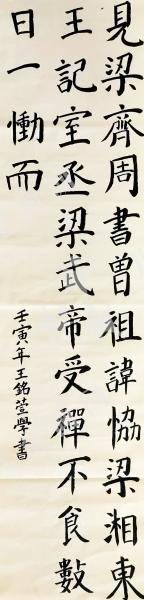 見梁齊周書曾祖諱恊梁湘東
王記室丞梁武帝受禪不食數
日一慟而
壬寅年王銘萱學書